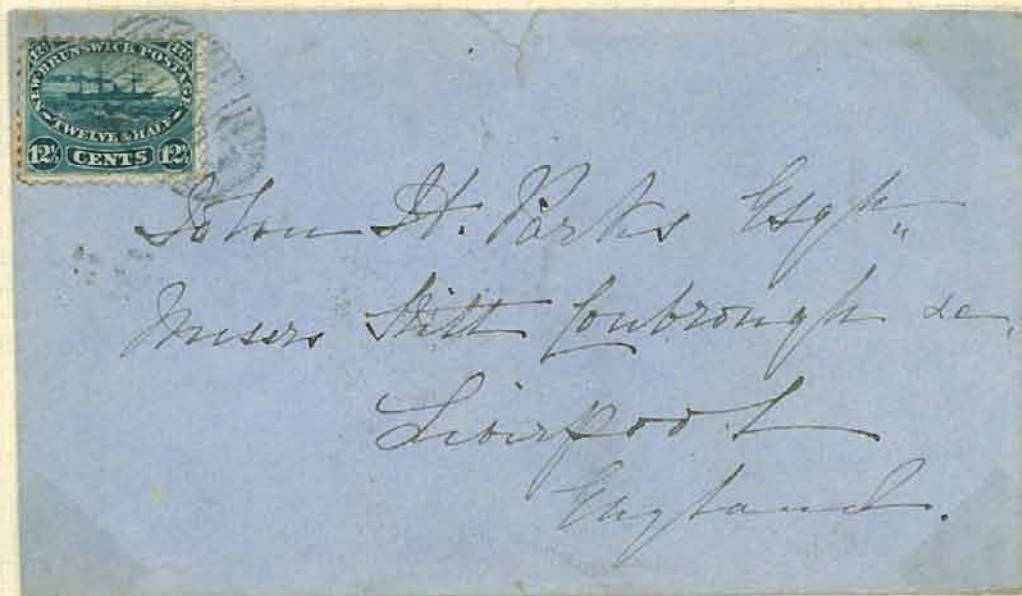 12½ 12½
NEW BRUNSWICK POSTAGE
TWELVE & HALF
12½ CENTS 12½
John H. Parks Esqr.
Messrs Stitt Coubrough &c,
Liverpool
England.